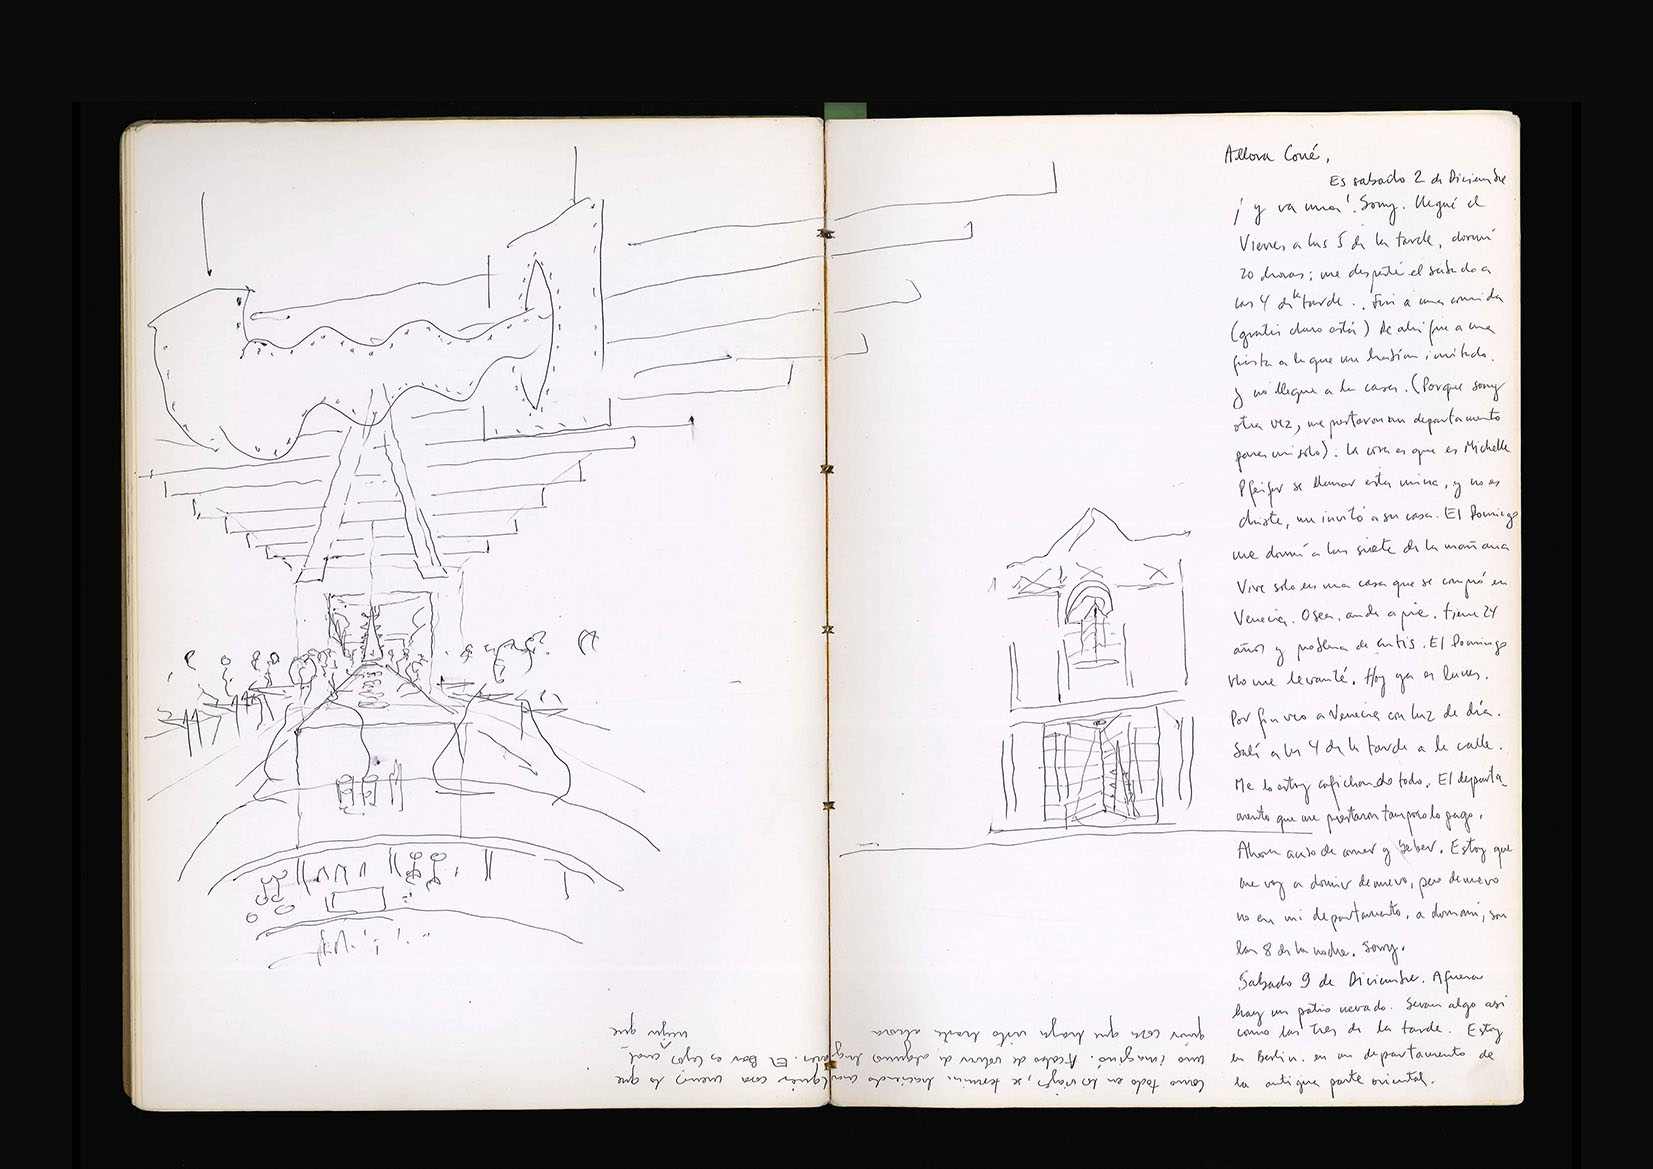 Allora Coné,
Es sabado 2 de Diciembre
¡ y va una! Sorry. Llegué el
Viernes a las 5 de la tarde, dormí
20 horas; me desperté el sabado a
las 4 de la tarde. Fui a una comida
(gratis claro está) De ahí fue a una
fiesta a la que me habían invitado.
y no llegue a la casa. (Porque sorry
otra vez, me prestaron un departamento
para mi solo). La cosa es que es Michelle
Pfeifer se llamar esta mina, y no es
chiste, me invitó a su casa. El Domingo
me dormí a las siete de la mañana
Vive sola en una casa que se compró en
Venecia. Osea, anda a pie. tiene 24
años y problema de cutis. El Domingo
no me levanté. Hoy ya es lunes.
Por fin veo a Venecia con luz de día.
Salí a las 4 de la tarde a la calle.
Me lo estoy cafichando todo. El departa-
mento que me prestaron tampoco lo pago.
Ahora acabo de comer y beber. Estoy que
me voy a dormir de nuevo, pero de nuevo
no en mi departamento. a dormir, son
las 8 de la noche. Sorry.
Sabado 9 de Diciembre. Afuera
hay un patio nevado. Seran algo asi
como las tres de la tarde. Estoy
en Berlin. en un departamento de
la antigua parte oriental.
Como todo en los viajes, se termina haciendo cualquier cosa menos lo que
uno imaginó. Acabo de volver de algunos lugares. El Bar es lejos
mejor que
quier cosa que haya visto hasta ahora